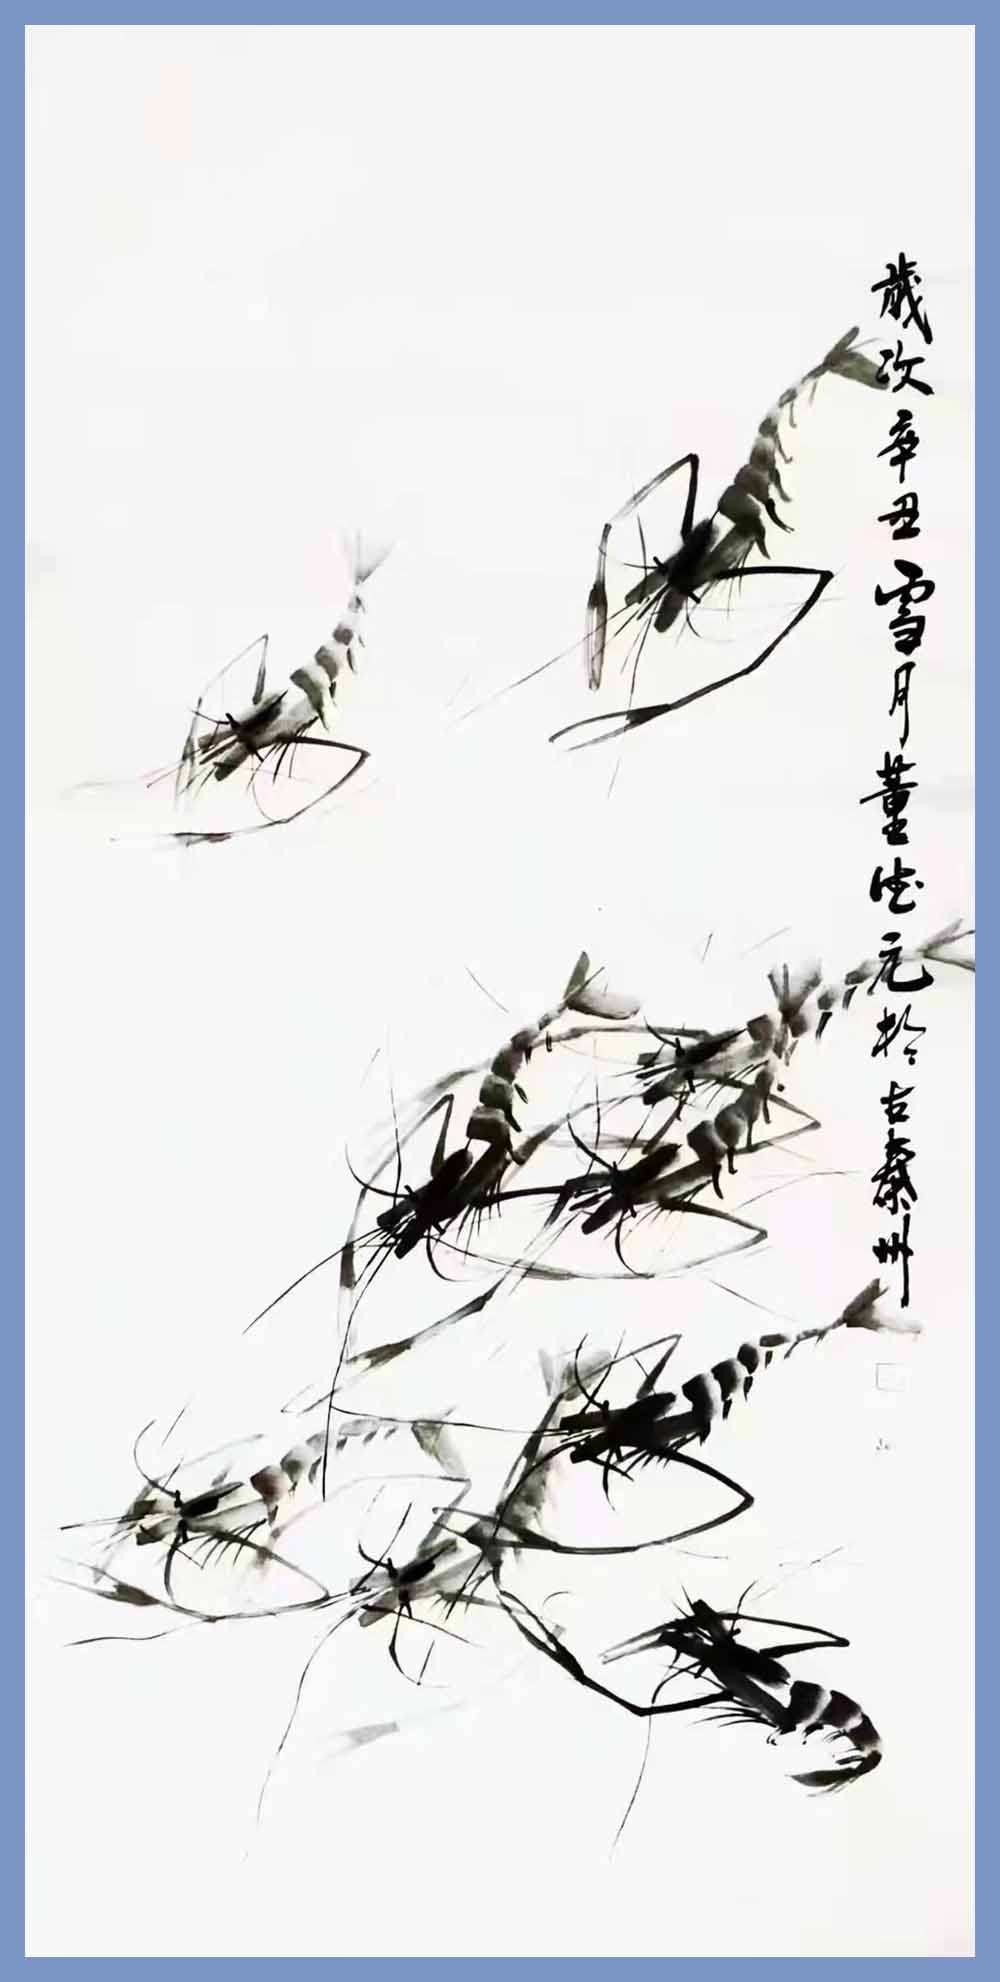 歲次辛丑雪月董德元於古秦州